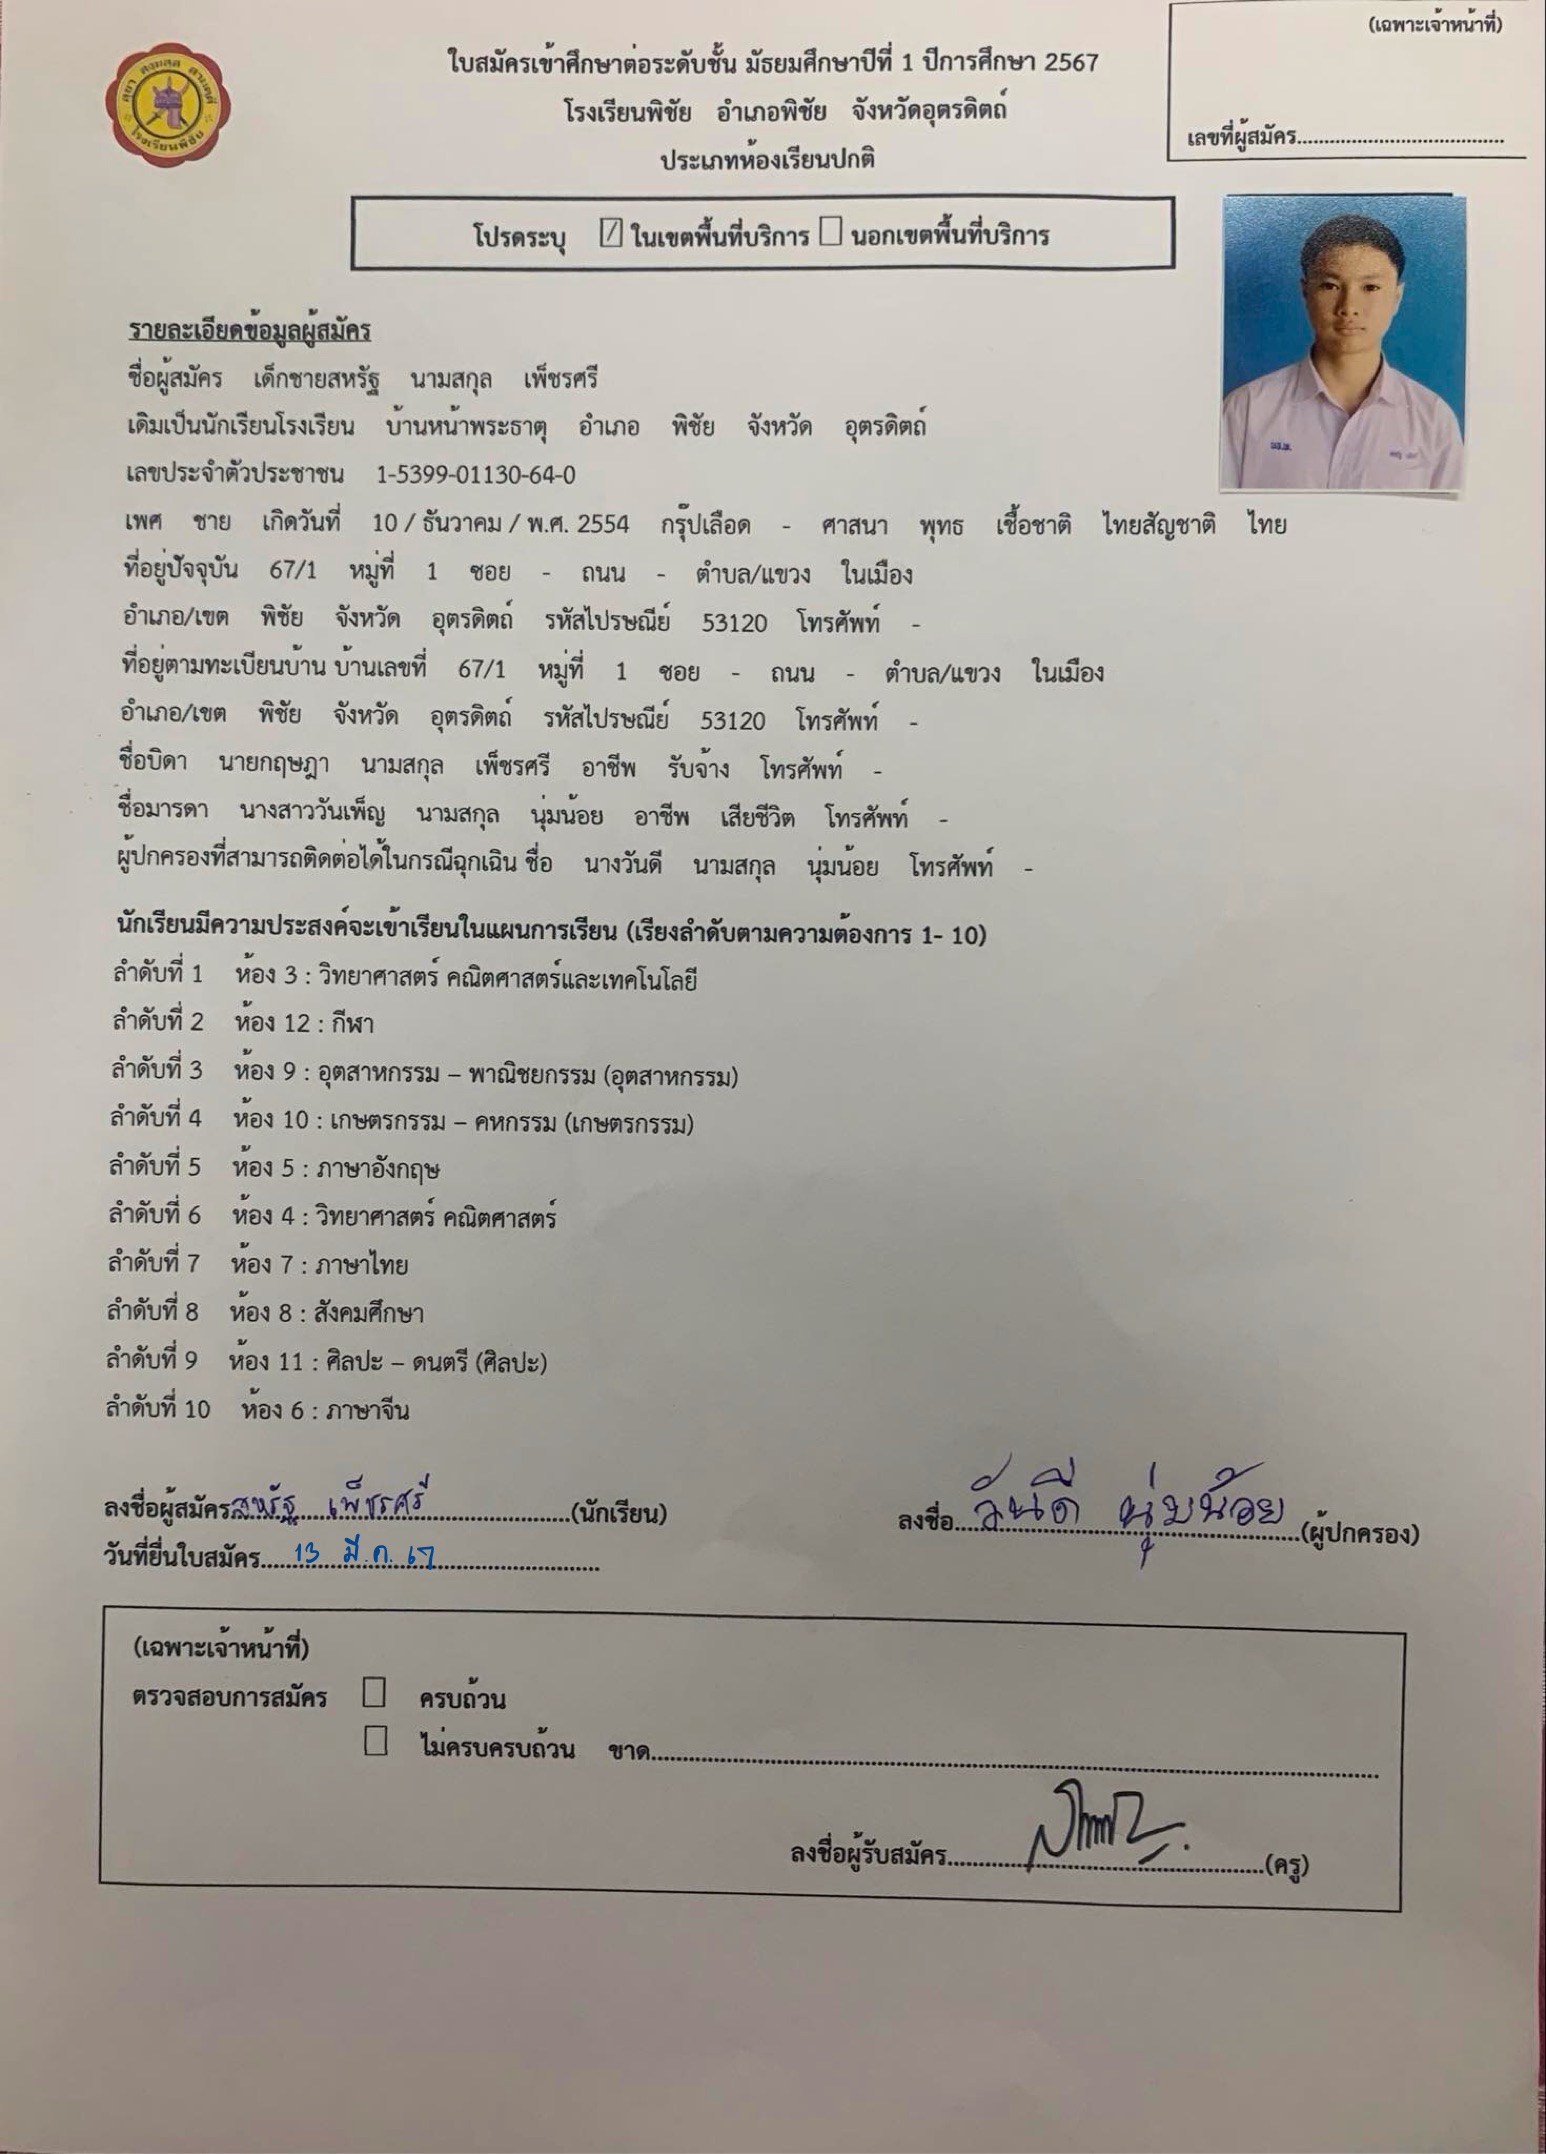 (เฉพาะเจ้าหน้าที่)
ใบสมัครเข้าศึกษาต่อระดับชั้น มัธยมศึกษาปีที่ 1 ปีการศึกษา 2567
โรงเรียนพิชัย อำเภอพิชัย จังหวัดอุตรดิตถ์
เลขที่ผู้สมัคร
ประเภทห้องเรียนปกติ
โรงเรียนพิชัย
โปรดระบุ ☑ ในเขตพื้นที่บริการ ☐ นอกเขตพื้นที่บริการ
รายละเอียดข้อมูลผู้สมัคร
ชื่อผู้สมัคร เด็กชายสหรัฐ นามสกุล เพ็ชรศรี
เดิมเป็นนักเรียนโรงเรียน บ้านหน้าพระธาตุ อำเภอ พิชัย จังหวัด อุตรดิตถ์
เลขประจำตัวประชาชน 1-5399-01130-64-0
เพศ ชาย เกิดวันที่ 10 / ธันวาคม / พ.ศ. 2554 กรุ๊ปเลือด - ศาสนา พุทธ เชื้อชาติ ไทยสัญชาติ ไทย
ที่อยู่ปัจจุบัน 67/1 หมู่ที่ 1 ซอย - ถนน - ตำบล/แขวง ในเมือง
อำเภอ/เขต พิชัย จังหวัด อุตรดิตถ์ รหัสไปรษณีย์ 53120 โทรศัพท์ -
ที่อยู่ตามทะเบียนบ้าน บ้านเลขที่ 67/1 หมู่ที่ 1 ซอย - ถนน - ตำบล/แขวง ในเมือง
อำเภอ/เขต พิชัย จังหวัด อุตรดิตถ์ รหัสไปรษณีย์ 53120 โทรศัพท์ -
ชื่อบิดา นายกฤษฎา นามสกุล เพ็ชรศรี อาชีพ รับจ้าง โทรศัพท์ -
ชื่อมารดา นางสาววันเพ็ญ นามสกุล นุ่มน้อย อาชีพ เสียชีวิต โทรศัพท์ -
ผู้ปกครองที่สามารถติดต่อได้ในกรณีฉุกเฉิน ชื่อ นางวันดี นามสกุล นุ่มน้อย โทรศัพท์ -
นักเรียนมีความประสงค์จะเข้าเรียนในแผนการเรียน (เรียงลำดับตามความต้องการ 1- 10)
ลำดับที่ 1 ห้อง 3 : วิทยาศาสตร์ คณิตศาสตร์และเทคโนโลยี
ลำดับที่ 2 ห้อง 12 : กีฬา
ลำดับที่ 3 ห้อง 9 : อุตสาหกรรม – พาณิชยกรรม (อุตสาหกรรม)
ลำดับที่ 4 ห้อง 10 : เกษตรกรรม – คหกรรม (เกษตรกรรม)
ลำดับที่ 5 ห้อง 5 : ภาษาอังกฤษ
ลำดับที่ 6 ห้อง 4 : วิทยาศาสตร์ คณิตศาสตร์
ลำดับที่ 7 ห้อง 7 : ภาษาไทย
ลำดับที่ 8 ห้อง 8 : สังคมศึกษา
ลำดับที่ 9 ห้อง 11 : ศิลปะ – ดนตรี (ศิลปะ)
ลำดับที่ 10 ห้อง 6 : ภาษาจีน
ลงชื่อผู้สมัคร สหรัฐ เพ็ชรศรี (นักเรียน)
ลงชื่อ วันดี นุ่มน้อย (ผู้ปกครอง)
วันที่ยื่นใบสมัคร 13 มี.ค. 67
(เฉพาะเจ้าหน้าที่)
ตรวจสอบการสมัคร ☐ ครบถ้วน
☐ ไม่ครบครบถ้วน ขาด
ลงชื่อผู้รับสมัคร (ครู)